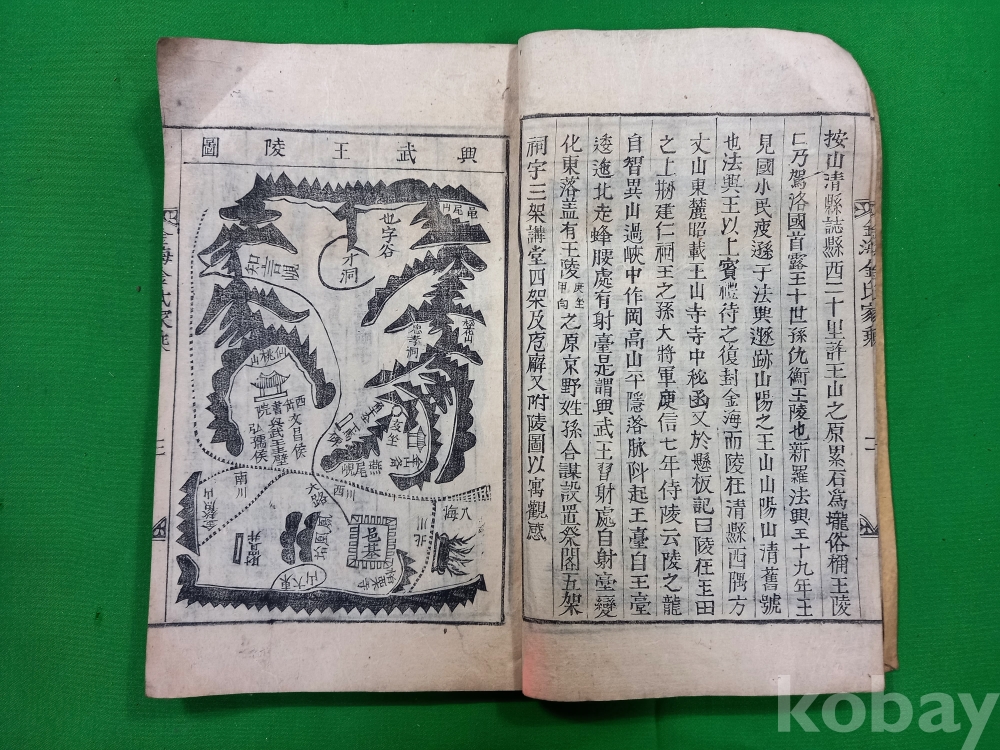 按山淸縣誌縣西二十里許王山之原累石爲壠俗稱王陵
仁乃駕洛國首露王十世孫仇衡王陵也新羅法興王十九年王
見國小民疲遜于法興遯跡山陽之王山山陽山淸舊號
也法興王以上賓禮待之復封金海而陵在淸縣西隅方
丈山東麓昭載王山寺寺中秘函又於懸板記曰陵在王田
之上刱建仁祠王之孫大將軍庾信七年侍陵云陵之龍
自智異山過峽中作岡高山平隱落脉陡起王臺自王臺
逶迤北走蜂腰處有射臺是謂興武王習射處自射臺變
化東落盖有王陵庚坐甲向之原京野姓孫合謀設置祭閣五架
祠宇三架講堂四架及庖廨又附陵圖以寓觀感
金海金氏家乘
興武王陵圖
龜尾山
也字谷
才洞
忠孝洞
仙桃山
西岳書院
文昌侯
興武王壁
弘孺侯
亥坐
燕尾峴
南川
西川
大路
北川
八海
邑基
鳳凰
金鰲山
財買井
東大山
金海金氏家乘